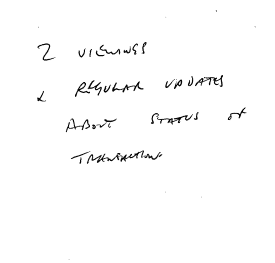 2 VIEWINGS
& REGULAR UPDATES
ABOUT STATUS OF
TRANSACTION